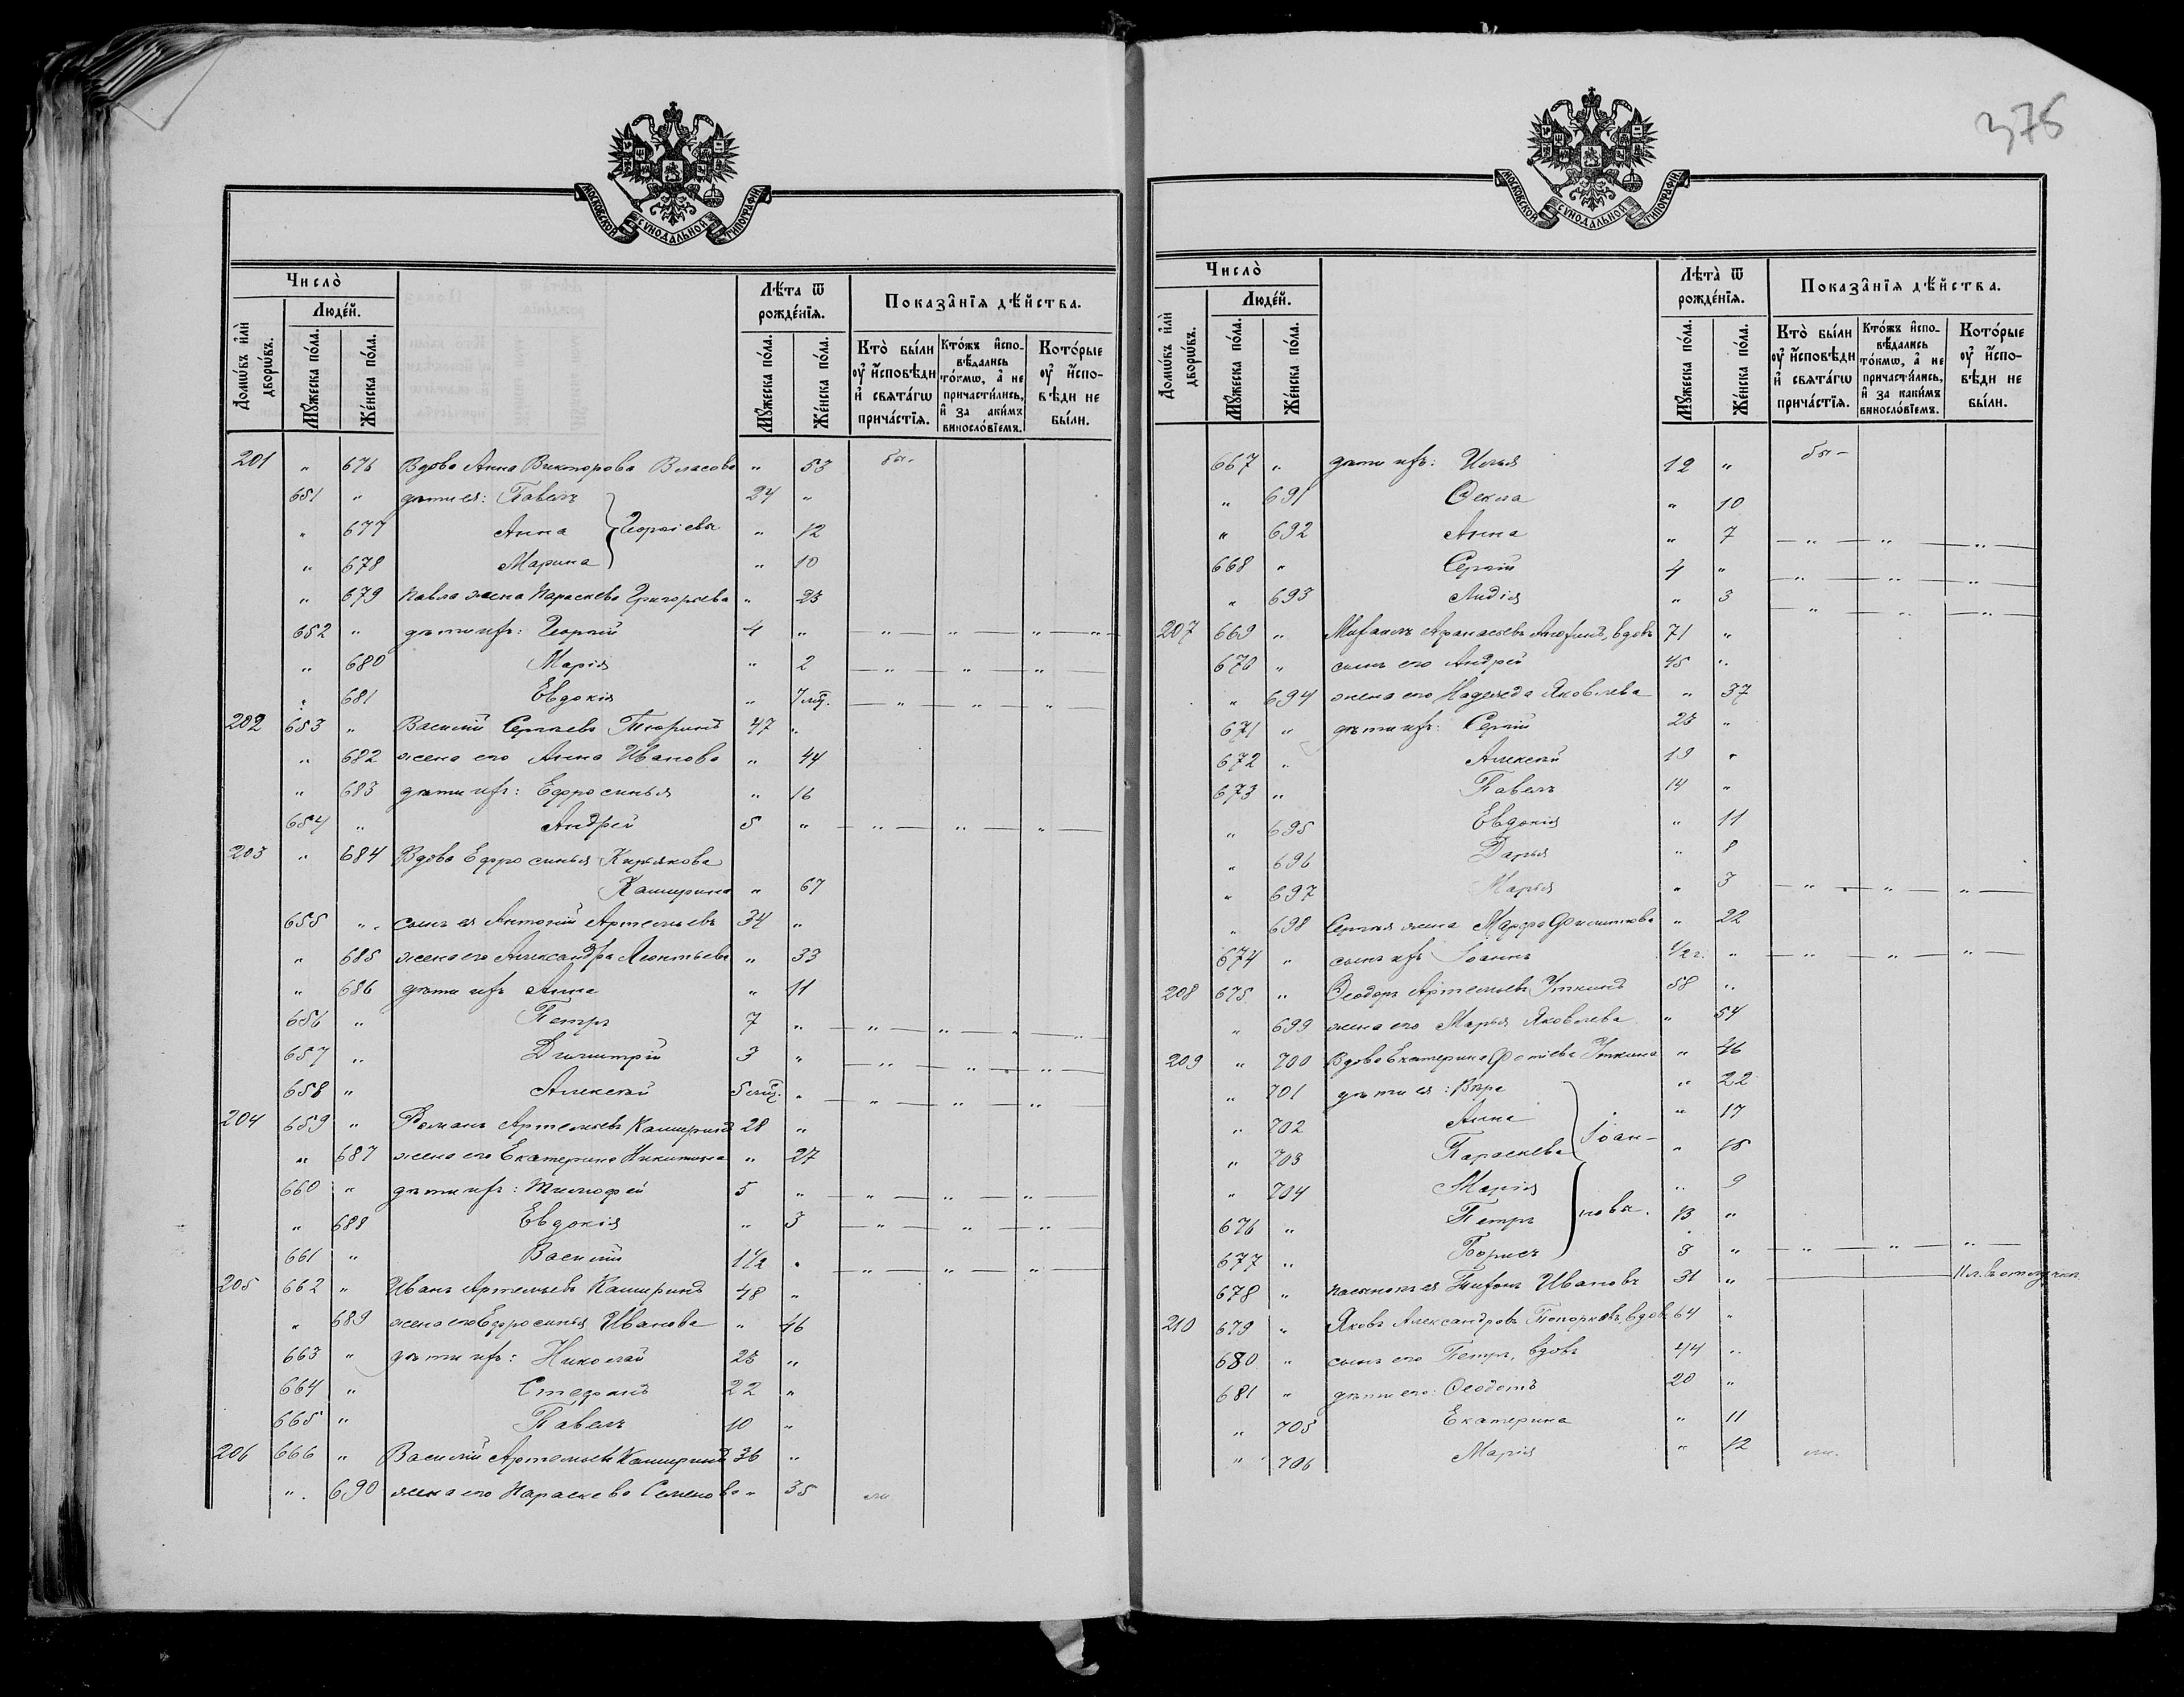 МОСКОВСКОЙ СѴНОДАЛЬНОЙ ТИПОГРАФІИ
Число̀
Людéй.
Домѡ́въ и҆лѝ дворѡ́въ.
Мꙋ́жеска по́ла.
Же́нска по́ла.
Лѣ́та ѿ рожде́нїѧ.
Мꙋ́жеска по́ла.
Же́нска по́ла.
Показа̑нїѧ дѣ́йства.
Кто̀ бы́ли оу҆ и҆́сповѣди и҆ свѧта́гѡ прича́стїѧ.
Кто́жъ и҆спо-вѣ́дались то́кмѡ, а҆ не причасти́лись, и҆ за акимъ винословїемъ.
Кото́рые оу҆ и҆́спо-вѣди не бы́ли.
201 " 676 Вдова Анна Викторова Власова " 53 бы-
651 " дѣти ея: Павелъ 24 "
" 677 Анна Георгіевы " 12
" 678 Марина " 10
" 679 Павла жена Параскева Григорьева " 23
652 " дѣти ихъ: Георгій 4 " " " " "
" 680 Марія " 2 " " "
" 681 Евдокія " 7 мѣс. " " "
202 653 " Василій Сергѣевъ Тюринъ 47 "
" 682 жена его Анна Иванова " 44
" 683 дѣти ихъ: Ефросинья " 16
654 " Андрей 5 " " " "
203 " 684 Вдова Ефросинья Кирьякова
Каширина " 67
655 " сынъ ея Антоній Артемьевъ 34 "
" 685 жена его Александра Леонтьева " 33
" 686 дѣти ихъ Анна " 11
656 " Петръ 7 " " " " "
657 " Димитрій 3 " " " "
658 " Алексѣй 5 мѣс. " " " "
204 659 " Романъ Артемьевъ Каширинъ 28 "
" 687 жена его Екатерина Никитина " 27
660 " дѣти ихъ: Тимофей 5 " " " "
" 688 Евдокія " 3 " " "
661 " Василій 1 1/2 " " " "
205 662 " Иванъ Артемьевъ Каширинъ 48 "
" 689 жена его Ефросинья Иванова " 46
663 " дѣти ихъ: Николай 23 "
664 " Стефанъ 22 "
665 " Павелъ 10 "
206 666 " Василій Артемьевъ Каширинъ 36 "
" 690 жена его Параскева Семенова " 35 ли
378
МОСКОВСКОЙ СѴНОДАЛЬНОЙ ТИПОГРАФІИ
Число̀
Людéй.
Домѡ́въ и҆лѝ дворѡ́въ.
Мꙋ́жеска по́ла.
Же́нска по́ла.
Лѣта̀ ѿ рожде́нїѧ.
Мꙋ́жеска по́ла.
Же́нска по́ла.
Показа̑нїѧ дѣ́йства.
Кто̀ бы́ли оу҆ и҆́сповѣди и҆ свѧта́гѡ прича́стїѧ.
Кто́жъ и҆спо-вѣ́дались то́кмѡ, а҆ не причасти́лись, и҆ за каки́мъ винослов́їемъ.
Кото́рые оу҆ и҆́спо-вѣди не бы́ли.
667 " дѣти ихъ: Илья 12 " бы-
" 691 Ѳекла " 10
" 692 Анна " 7 " " "
668 " Сергій 4 " " " "
" 693 Лидія " 3 " " "
207 669 " Михаилъ Афанасьевъ вдовъ 71 "
670 " сынъ его Андрей 45 "
" 694 жена его Надежда Яковлева " 37
671 " дѣти ихъ: Сергій 23 "
672 " Алексѣй 19 "
673 " Павелъ 14 "
" 695 Евдокія " 11
" 696 Дарья " 8
" 697 Марья " 3 " " "
" 698 Сергѣя жена Марфа " 22
674 " сынъ ихъ Іоаннъ 1/2 г. " " " "
208 675 " Ѳеодоръ Артемьевъ Уткинъ 58 "
" 699 жена его Марья Яковлева " 54
209 " 700 Вдова Екатерина Фотіева Уткина " 46
" 701 дѣти ея: Вѣра " 22
" 702 Анна " 17
" 703 Параскева Іоан- " 15
" 704 Марія " 9
676 " Петръ новы. 13 "
677 " Борисъ 3 " " " "
678 " пасынокъ ея Тихонъ Ивановъ 31 " въ отлучкѣ
210 679 " Яковъ Александровъ Топорковъ, вдовъ 64 "
680 " сынъ его Петръ, вдовъ 44 "
681 " дѣти его: Ѳеодотъ 20 "
" 705 Екатерина " 11
" 706 Марія " 12 ли.